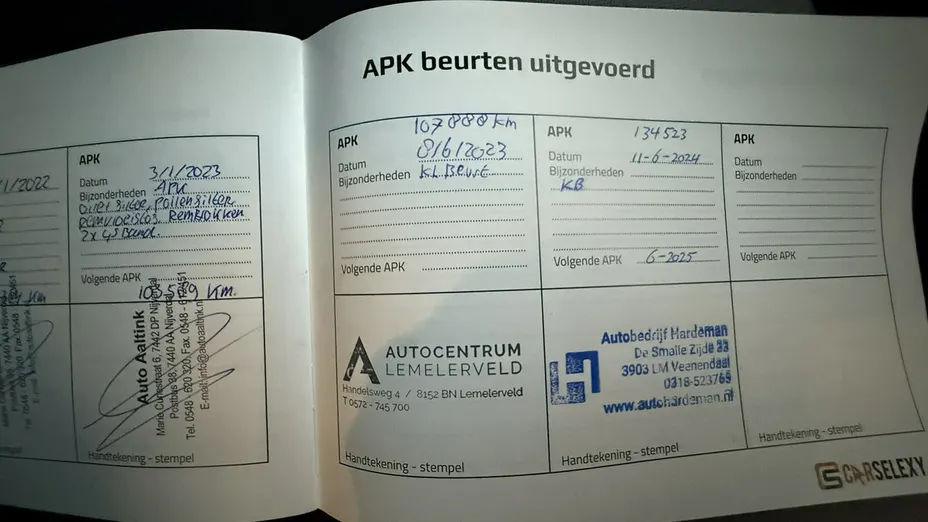 APK beurten uitgevoerd
1/2022
APK
Datum 3/1/2023
Bijzonderheden APK
Oliefilter, Pollenfilter
remvloeistof. Remblokken
2x 4s Band.
Volgende APK
Km.
Auto Aaltink
Marie Curiestraat 6, 7442 DP Nijverdal
Postbus 38, 7440 AA Nijverdal
Tel. 0548 - 600 320, Fax. 0548 -
E-mail: info@autoaaltink.nl
Handtekening - stempel
APK 107888 km
Datum 8/6/2023
Bijzonderheden KL Beurt
Volgende APK
AUTOCENTRUM
LEMELERVELD
Handelsweg 4 / 8152 BN Lemelerveld
T 0572 - 745 700
Handtekening - stempel
APK 134523
Datum 11-6-2024
Bijzonderheden
KB
Volgende APK 6-2025
Autobedrijf Hardeman
De Smalle Zijde 23
3903 LM Veenendaal
0318-523765
www.autohardeman.nl
Handtekening - stempel
APK
Datum
Bijzonderheden
Volgende APK
Handtekening - stempel
CARSELEXY